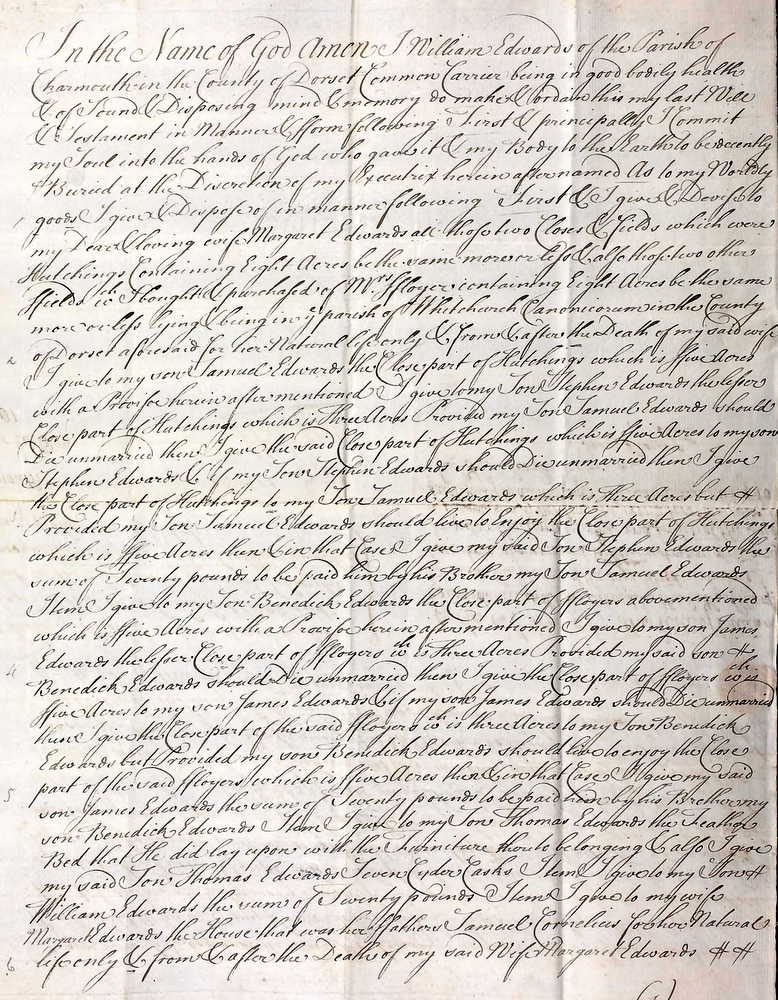 In the Name of God Amen I William Edwards of the Parish of
Charmouth in the County of Dorset Common Carrier being in good bodily health
& of Sound & Disposing mind & memory do make & ordain this my last Will
& Testament in Manner & fform following First & principally I Commit
my Soul into the hands of God who gave it & my Body to the Earth to be decently
Buried at the Discretion of my Executrix herein after named As to my Worldly
1 goods I give & Dispose of in manner following First & I give & Devise to
my Dear & loving wife Margaret Edwards all those two Closes & fields which were
Hutchings Containing Eight Acres be the same more or less & also those two other
ffields wch I bought & purchased of Mrs ffloyer containing Eight Acres be the same
more or less lying & being in ye parish of Whitchurch Canonicorum in the County
of Dorset aforesaid for her Natural life only & from & after the Death of my said wife
2 I give to my son Samuel Edwards the Close part of Hutchings which is ffive Acres
with a Proviso herein after mentioned I give to my Son Stephen Edwards the lesser
Close part of Hutchings which is Three Acres Provided my Son Samuel Edwards should
Die unmarried then I give the said Close part of Hutchings which is ffive Acres to my son
Stephen Edwards & if my Son Stephen Edwards should Die unmarried then I give
the Close part of Hutchings to my Son Samuel Edwards which is Three Acres but #
Provided my Son Samuel Edwards should live to Enjoy the Close part of Hutchings
which is ffive Acres then & in that Case I give my said Son Stephen Edwards the
sum of Twenty pounds to be paid him by his Brother my Son Samuel Edwards
Item I give to my Son Benedick Edwards the Close part of ffloyers abovementioned
which is ffive Acres with a Proviso herein after mentioned I give to my son James
4 Edwards the lesser Close part of ffloyers wch is Three Acres Provided my said son #
Benedick Edwards should Die unmarried then I give the Close part of ffloyers wch is
ffive Acres to my son James Edwards & if my son James Edwards should Die unmarried
then I give the Close part of the said ffloyers wch is three Acres to my Son Benedick
Edwards but Provided my son Benedick Edwards should live to enjoy the Close
part of the said ffloyers which is ffive Acres then & in that Case I give my said
5 son James Edwards the sum of Twenty pounds to be paid him by his Brother my
son Benedick Edwards Item I give to my Son Thomas Edwards the Feather
Bed that He did lay upon with the Furniture thereto belonging & also I give
my said Son Thomas Edwards Seven Cyder Casks Item I give to my Son #
William Edwards the sum of Twenty pounds Item I give to my wife
Margaret Edwards the House that was her ffathers Samuel Cornelius for her Natural
6 life only & from & after the Death of my said Wife Margaret Edwards # #